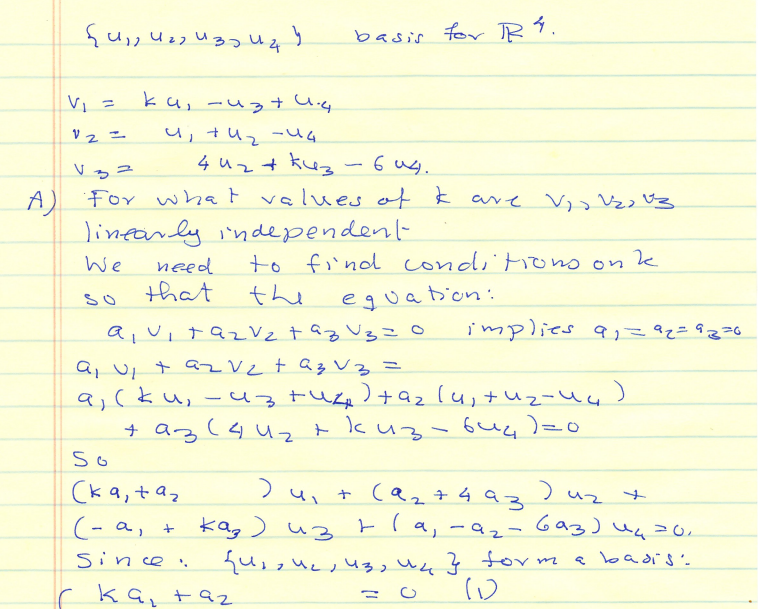 {u₁, u₂, u₃, u₄} basis for ℝ⁴.
v₁ = ku₁ - u₃ + u₄
v₂ = u₁ + u₂ - u₄
v₃ = 4u₂ + ku₃ - 6u₄.
A) For what values of k are v₁, v₂, v₃
linearly independent
We need to find conditions on k
so that the equation:
a₁v₁ + a₂v₂ + a₃v₃ = 0 implies a₁ = a₂ = a₃ = 0
a₁v₁ + a₂v₂ + a₃v₃ =
a₁(ku₁ - u₃ + u₄) + a₂(u₁ + u₂ - u₄)
+ a₃(4u₂ + ku₃ - 6u₄) = 0
So
(ka₁ + a₂ )u₁ + (a₂ + 4a₃)u₂ +
(-a₁ + ka₃)u₃ + (a₁ - a₂ - 6a₃)u₄ = 0.
Since: {u₁, u₂, u₃, u₄} form a basis:
( ka₁ + a₂ = 0 (1)